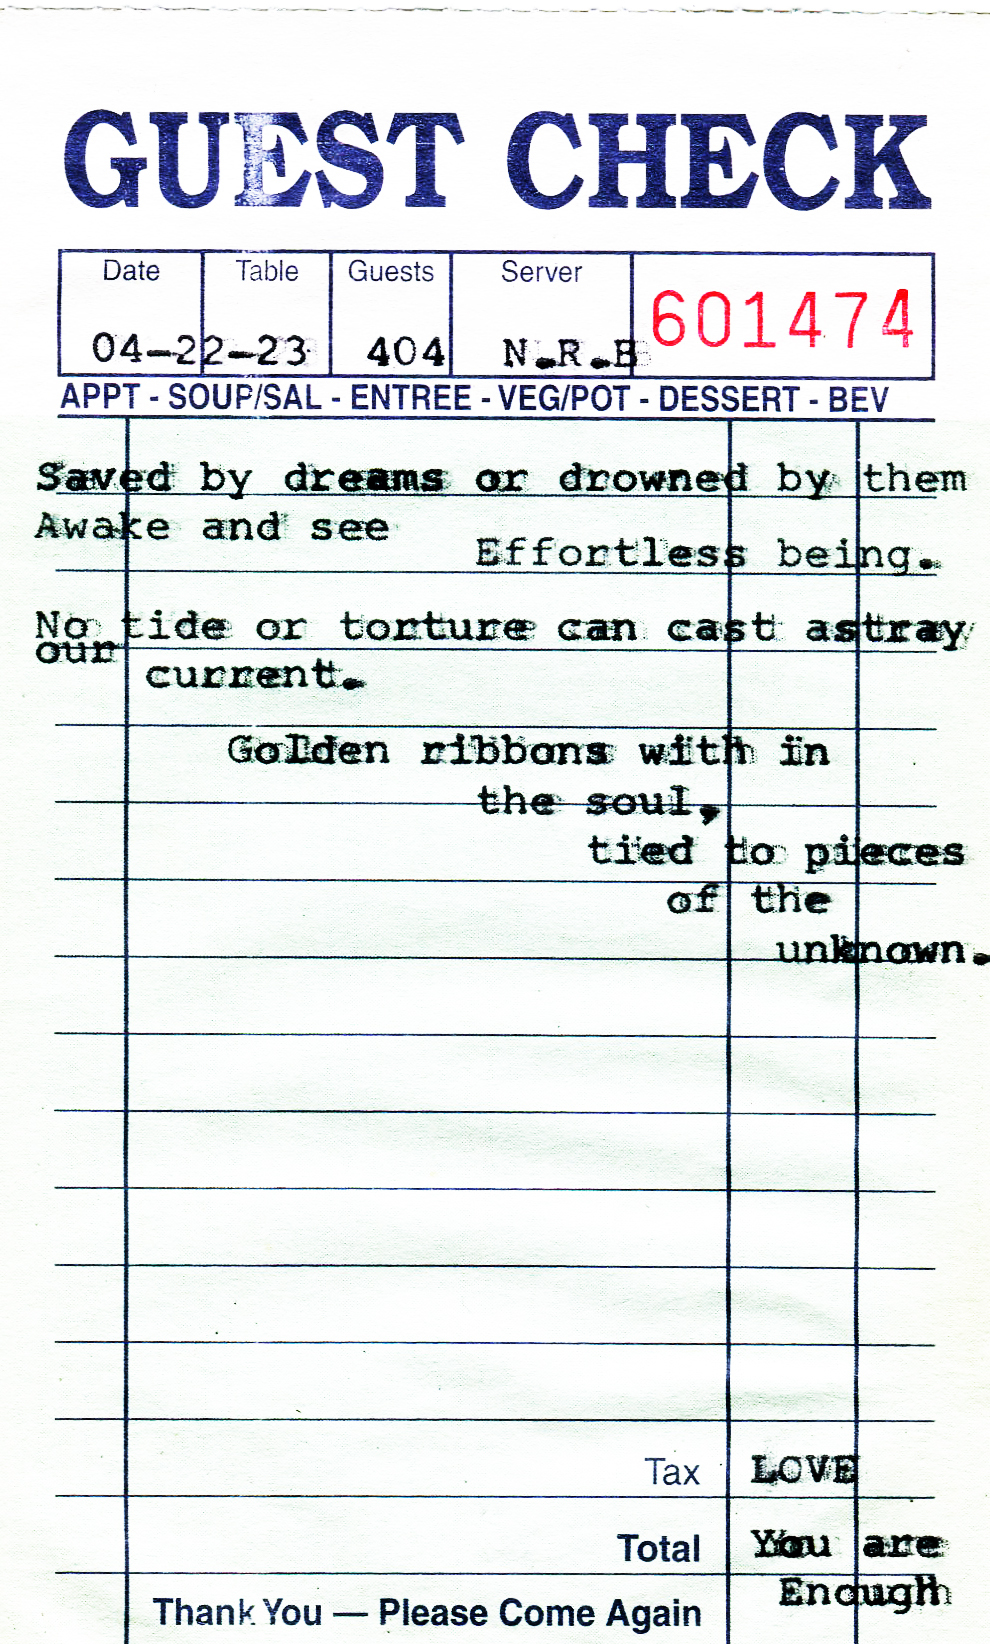 GUEST CHECK
Date Table Guests Server
04-22-23 404 N.R.B 601474
APPT - SOUP/SAL - ENTREE - VEG/POT - DESSERT - BEV
Saved by dreams or drowned by them
Awake and see
Effortless being.
No tide or torture can cast astray
our
current.
Golden ribbons with in
the soul,
tied to pieces
of the
unknown.
Tax LOVE
Total You are
Enough
Thank You — Please Come Again